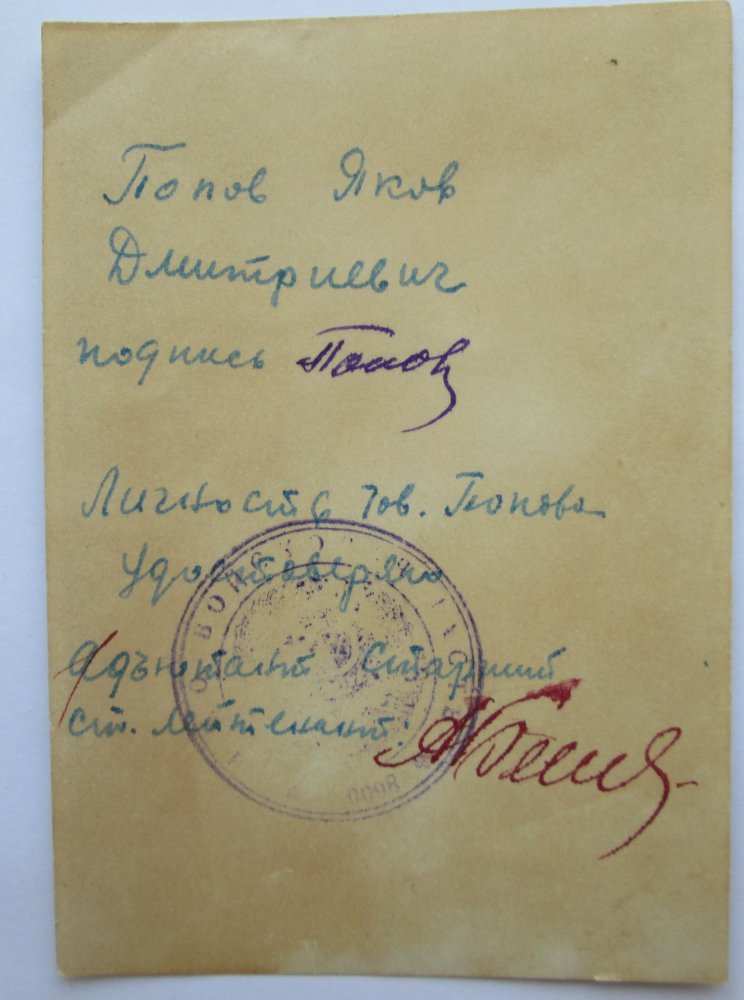 Попов Яков
Дмитриевич
подпись Попов
Личность тов. Попова
удостоверяю
Адъютант старший
ст. лейтенант: